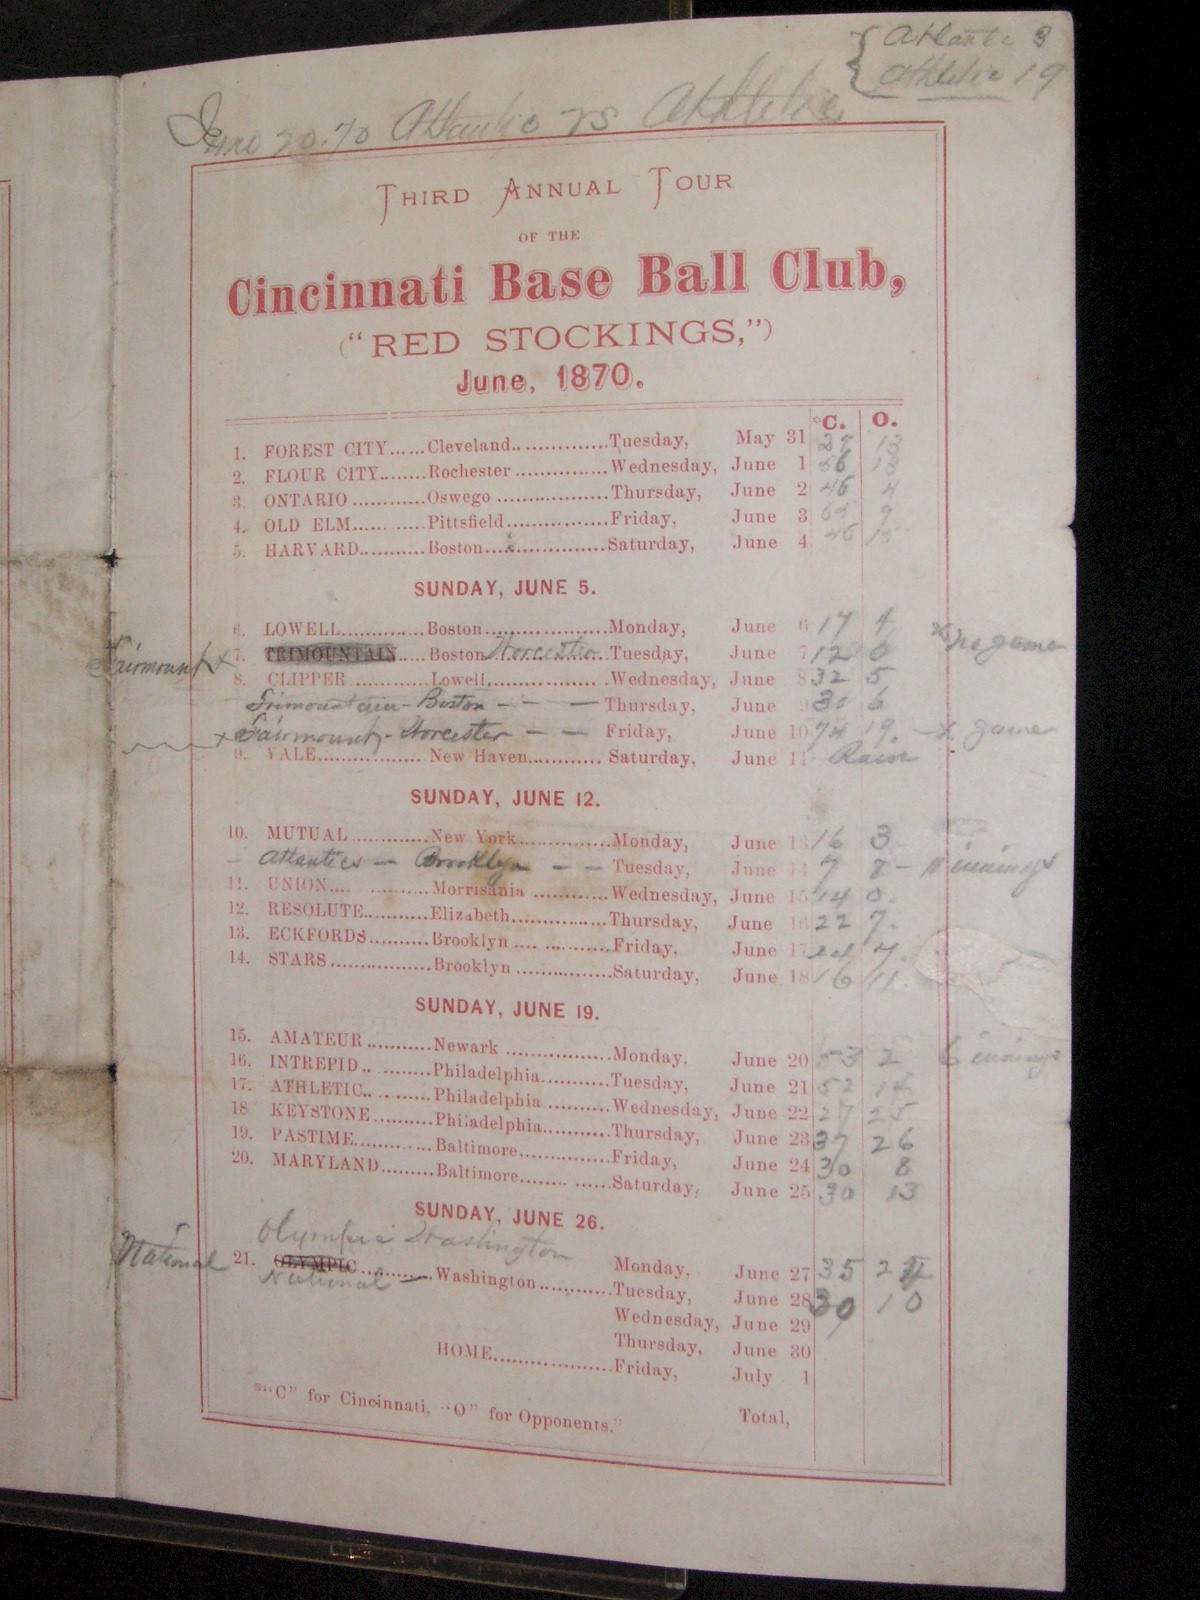 { Atlantic 3
Athletic 19
June 20. 70 Atlantic vs Athletic
THIRD ANNUAL TOUR
OF THE
Cincinnati Base Ball Club,
("RED STOCKINGS,")
June, 1870.
*C. O.
1. FOREST CITY......Cleveland................Tuesday, May 31 27 13
2. FLOUR CITY........Rochester................Wednesday, June 1 56 13
3. ONTARIO............Oswego...................Thursday, June 2 46 4
4. OLD ELM...........Pittsfield.................Friday, June 3 65 9
5. HARVARD..........Boston....................Saturday, June 4 46 15
SUNDAY, JUNE 5.
6. LOWELL.............Boston....................Monday, June 6 17 4
Fairmount x 7. TRIMOUNTAIN.....Boston Worcester...Tuesday, June 7 12 0 x No game
8. CLIPPER............Lowell....................Wednesday, June 8 32 5
Trimountain - Boston - - - Thursday, June 9 30 6
x Fairmount - Worcester - - Friday, June 10 74 19. - x game
9. YALE................New Haven............Saturday, June 11 Rain
SUNDAY, JUNE 12.
10. MUTUAL............New York...............Monday, June 13 16 3
- Atlantics - Brooklyn - - Tuesday, June 14 7 8 - 11 innings
11. UNION.... ..........Morrisania ............Wednesday, June 15 14 0.
12. RESOLUTE..........Elizabeth................Thursday, June 16 22 7.
13. ECKFORDS..........Brooklyn .... ..........Friday, June 17 24 7.
14. STARS...............Brooklyn ...............Saturday, June 18 16 11.
SUNDAY, JUNE 19.
15. AMATEUR...........Newark .................Monday. June 20 53 2 6 innings
16. INTREPID.. ........Philadelphia...........Tuesday, June 21 52 14
17. ATHLETIC.. . ......Philadelphia ..........Wednesday, June 22 27 25
18 KEYSTONE..........Philadelphia...........Thursday, June 23 37 26
19. PASTIME............Baltimore...............Friday, June 24 30 8
20. MARYLAND.........Baltimore........ ......Saturday, June 25 30 13
SUNDAY, JUNE 26.
Olympic Washington Monday, June 27 35 24
National 21. OLYMPIC............Washington............Tuesday, June 28 30 10
National -
Wednesday, June 29
Thursday, June 30
HOME....................Friday, July 1
*"C" for Cincinnati, "O" for Opponents." Total,